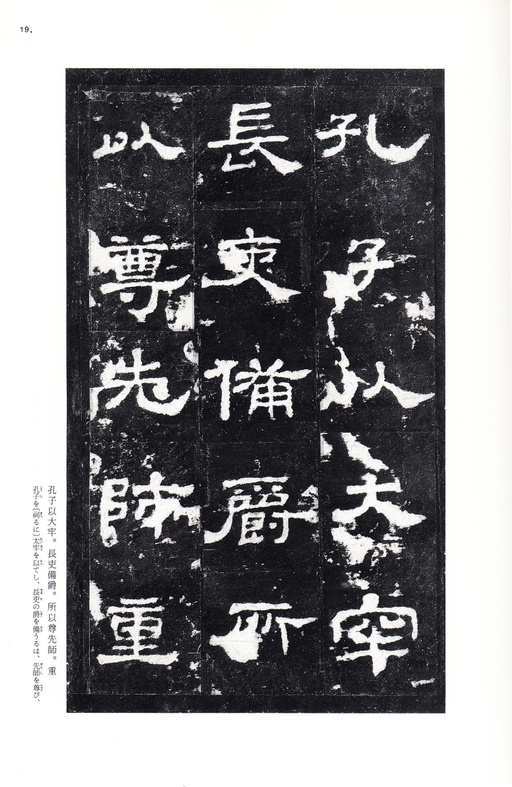 19.
孔子以大牢
長吏備爵所
以尊先師重
孔子以大牢。長吏備爵。所以尊先師。重
孔子を〔祠るに〕太牢を以てし、長吏の爵を備うるは、先師を尊び、